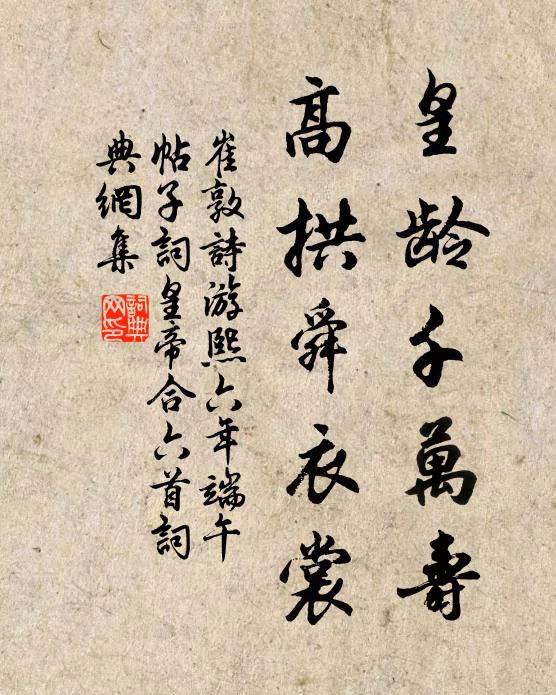 皇龄千萬壽
高拱舜衣裳
崔敦詩游熙六年端午
帖子詞皇帝合六首詞
典網集
詞典
网印